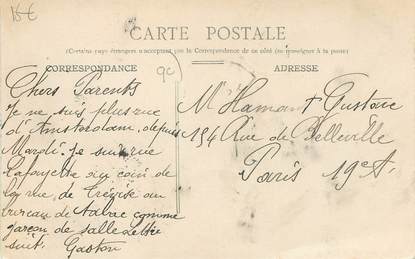 15€
CARTE POSTALE
(Certains pays étrangers n'acceptent pas la Correspondance de ce côté (se renseigner à la poste)
CORRESPONDANCE
ADRESSE
90
Chers Parents
Je ne suis plus rue
d'Amsterdam, depuis
Mardi. Je suis rue
Lafayette au coin de
la rue, de Trévise au
bureau de Tabac comme
garçon de salle lettre
suit. Gaston
Mr Hamant Gustave
194 Rue de Belleville
Paris 19e A.